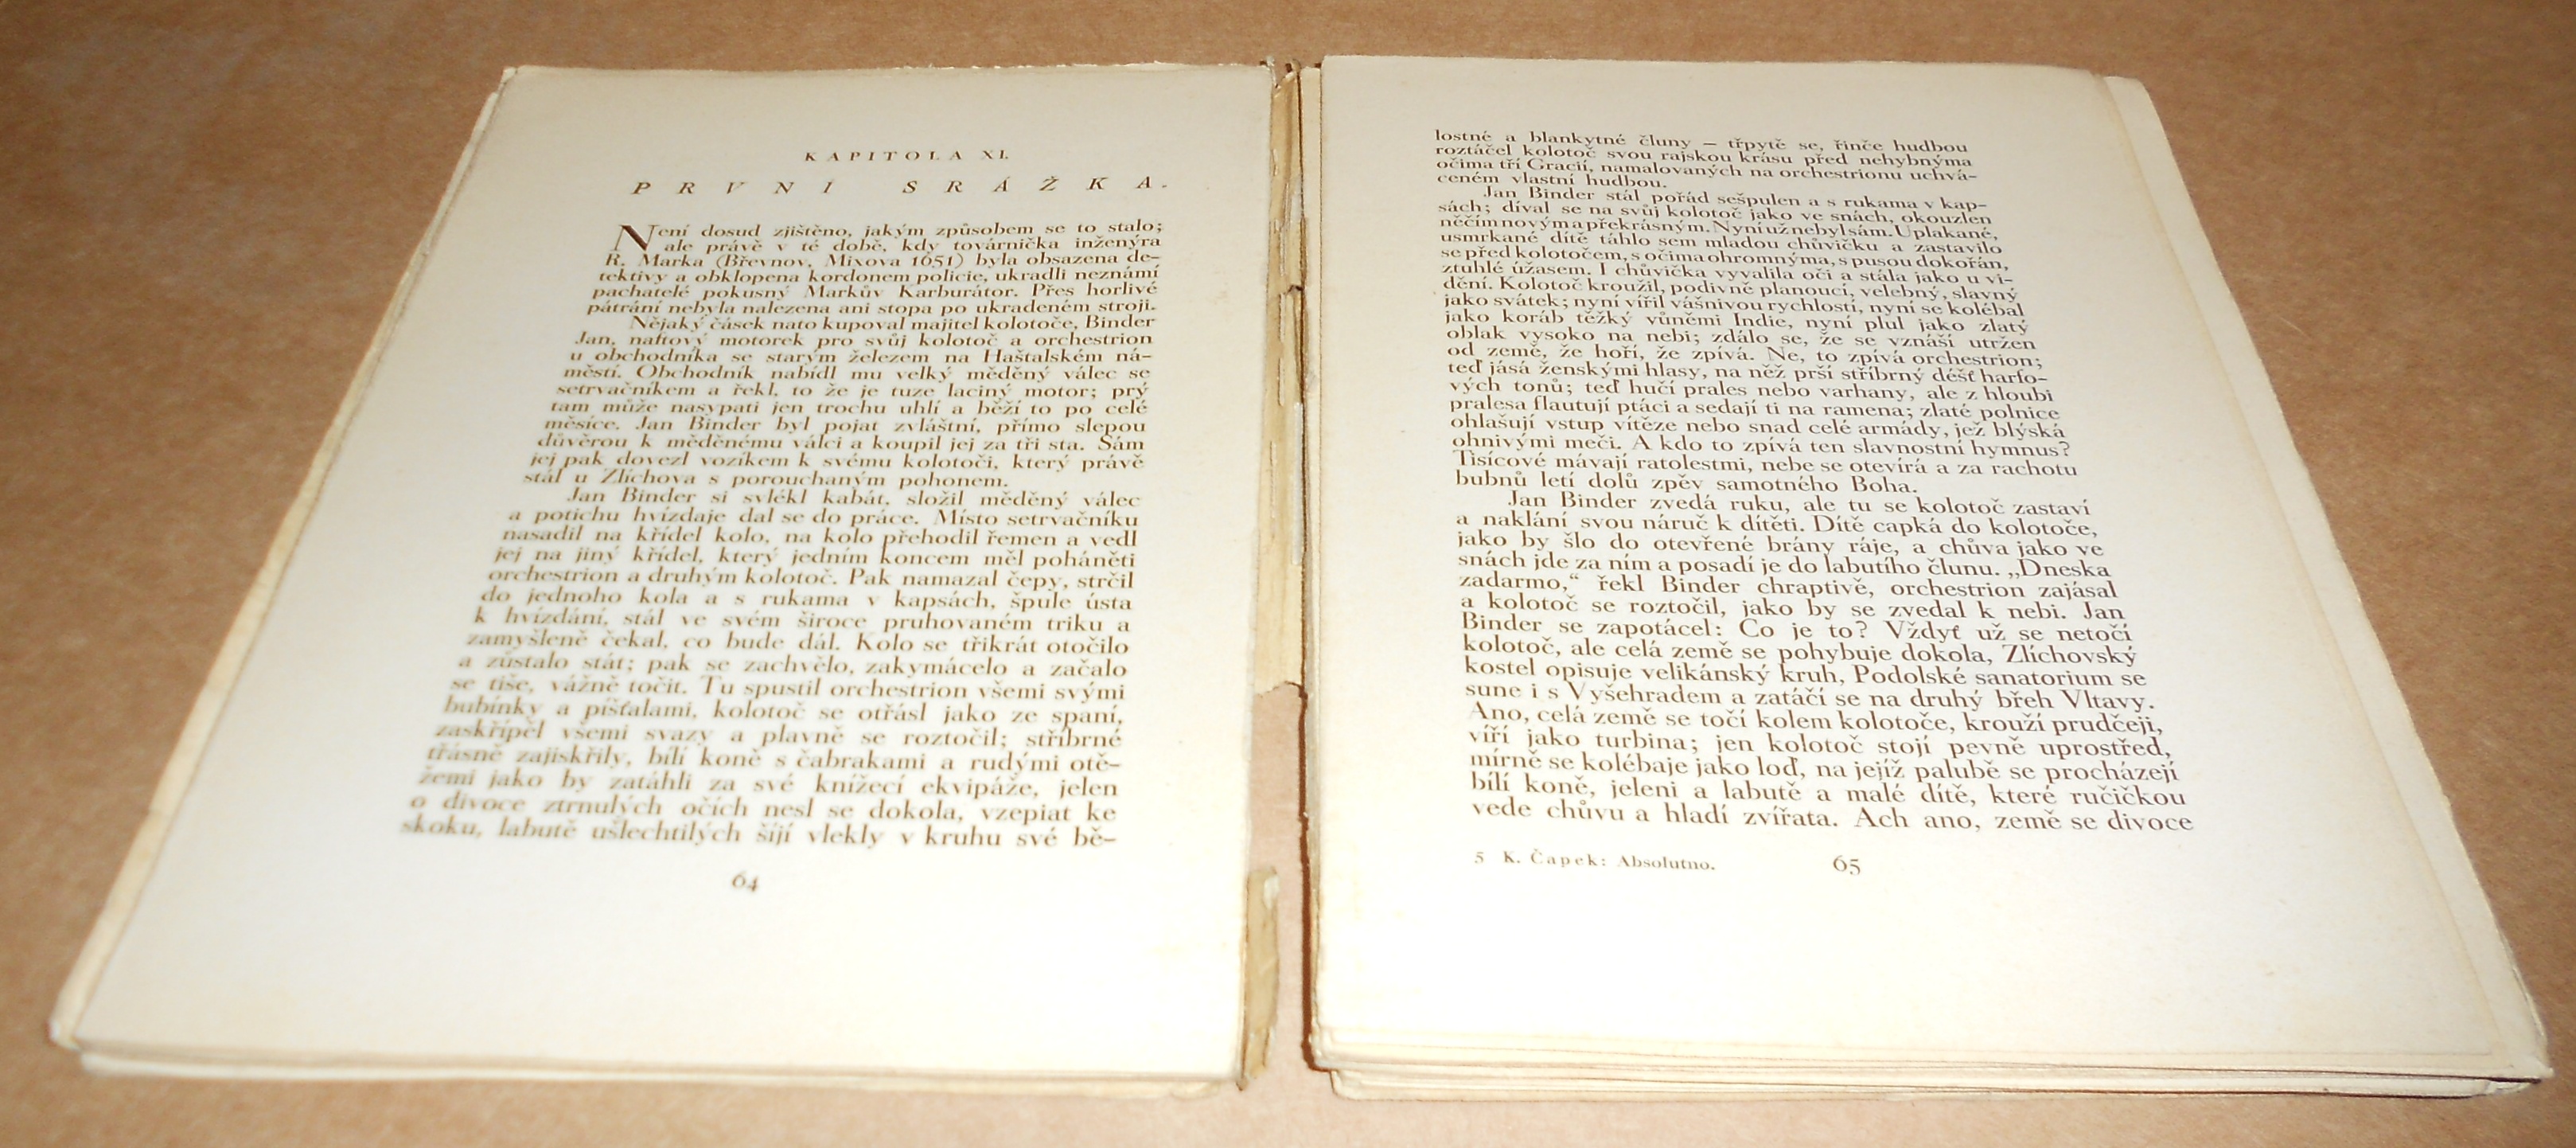 KAPITOLA XI.
PRVNÍ SRÁŽKA.
Není dosud zjištěno, jakým způsobem se to stalo;
ale právě v té době, kdy továrnička inženýra
R. Marka (Břevnov, Mixova 1651) byla obsazena de-
tektivy a obklopena kordonem policie, ukradli neznámí
pachatelé pokusný Markův Karburátor. Přes horlivé
pátrání nebyla nalezena ani stopa po ukradeném stroji.
Nějaký čásek nato kupoval majitel kolotoče, Binder
Jan, naftový motorek pro svůj kolotoč a orchestrion
u obchodníka se starým železem na Haštalském ná-
městí. Obchodník nabídl mu velký měděný válec se
setrvačníkem a řekl, to že je tuze laciný motor; prý
tam může nasypati jen trochu uhlí a běží to po celé
měsíce. Jan Binder byl pojat zvláštní, přímo slepou
důvěrou k měděnému válci a koupil jej za tři sta. Sám
jej pak dovezl vozíkem k svému kolotoči, který právě
stál u Zlíchova s porouchaným pohonem.
Jan Binder si svlékl kabát, složil měděný válec
a potichu hvízdaje dal se do práce. Místo setrvačníku
nasadil na křídel kolo, na kolo přehodil řemen a vedl
jej na jiný křídel, který jedním koncem měl poháněti
orchestrion a druhým kolotoč. Pak namazal čepy, strčil
do jednoho kola a s rukama v kapsách, špule ústa
k hvízdání, stál ve svém široce pruhovaném triku a
zamyšleně čekal, co bude dál. Kolo se třikrát otočilo
a zůstalo stát; pak se zachvělo, zakymácelo a začalo
se tiše, vážně točit. Tu spustil orchestrion všemi svými
bubínky a píšťalami, kolotoč se otřásl jako ze spaní,
zaskřípěl všemi svazy a plavně se roztočil; stříbrné
třásně zajiskřily, bílí koně s čabrakami a rudými otě-
žemi jako by zatáhli za své knížecí ekvipáže, jelen
o divoce ztrnulých očích nesl se dokola, vzepiat ke
skoku, labutě ušlechtilých šíjí vlekly v kruhu své bě-
64
lostné a blankytné čluny — třpytě se, řinče hudbou
roztáčel kolotoč svou rajskou krásu před nehybnýma
očima tří Gracií, namalovaných na orchestrionu uchvá-
ceném vlastní hudbou.
Jan Binder stál pořád sešpulen a s rukama v kap-
sách; díval se na svůj kolotoč jako ve snách, okouzlen
něčím novým a překrásným. Nyní už nebyl sám. Uplakané,
usmrkané dítě táhlo sem mladou chůvičku a zastavilo
se před kolotočem, s očima ohromnýma, s pusou dokořán,
ztuhlé úžasem. I chůvička vyvalila oči a stála jako u vi-
dění. Kolotoč kroužil, podivně planoucí, velebný, slavný
jako svátek; nyní vířil vášnivou rychlostí, nyní se kolébal
jako koráb těžký vůněmi Indie, nyní plul jako zlatý
oblak vysoko na nebi; zdálo se, že se vznáší utržen
od země, že hoří, že zpívá. Ne, to zpívá orchestrion;
teď jásá ženskými hlasy, na něž prší stříbrný déšť harfo-
vých tonů; teď hučí prales nebo varhany, ale z hloubi
pralesa flautují ptáci a sedají ti na ramena; zlaté polnice
ohlašují vstup vítěze nebo snad celé armády, jež blýská
ohnivými meči. A kdo to zpívá ten slavnostní hymnus?
Tisícové mávají ratolestmi, nebe se otevírá a za rachotu
bubnů letí dolů zpěv samotného Boha.
Jan Binder zvedá ruku, ale tu se kolotoč zastaví
a naklání svou náruč k dítěti. Dítě capká do kolotoče,
jako by šlo do otevřené brány ráje, a chůva jako ve
snách jde za ním a posadí je do labutího člunu. „Dneska
zadarmo,“ řekl Binder chraptivě, orchestrion zajásal
a kolotoč se roztočil, jako by se zvedal k nebi. Jan
Binder se zapotácel: Co je to? Vždyť už se netočí
kolotoč, ale celá země se pohybuje dokola, Zlíchovský
kostel opisuje velikánský kruh, Podolské sanatorium se
sune i s Vyšehradem a zatáčí se na druhý břeh Vltavy.
Ano, celá země se točí kolem kolotoče, krouží prudčeji,
víří jako turbina; jen kolotoč stojí pevně uprostřed,
mírně se kolébaje jako loď, na jejíž palubě se procházejí
bílí koně, jeleni a labutě a malé dítě, které ručičkou
vede chůvu a hladí zvířata. Ach ano, země se divoce
5 K. Čapek: Absolutno.
65